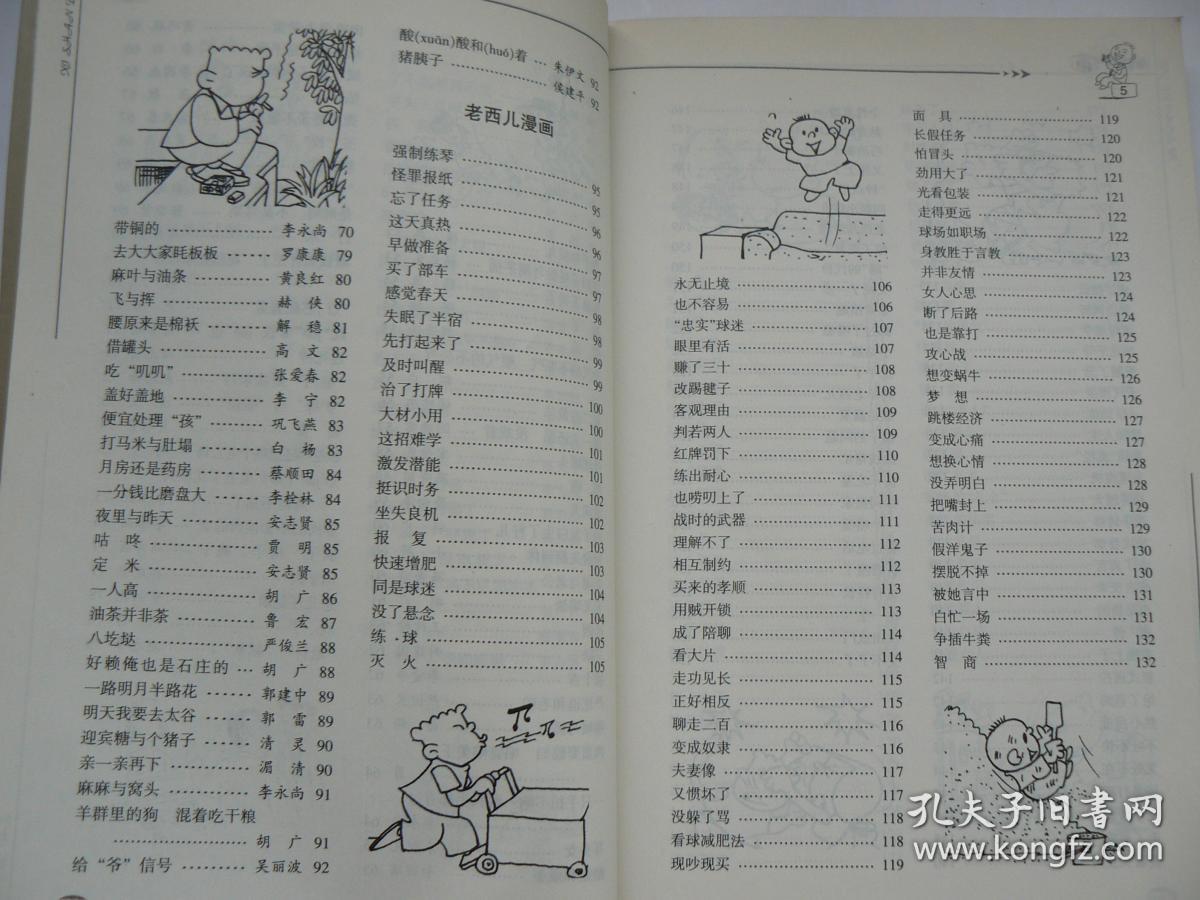 带铜的 李永尚 70
去大大家眊板板 罗康康 79
麻叶与油条 黄良红 80
飞与挥 赫侠 80
腰原来是棉袄 解稳 81
借罐头 高文 82
吃“叽叽” 张爱春 82
盖好盖地 李宁 82
便宜处理“孩” 巩飞燕 83
打马米与肚塌 白杨 83
月房还是药房 蔡顺田 84
一分钱比磨盘大 李栓林 84
夜里与昨天 安志贤 85
咕咚 贾明 85
定米 安志贤 85
一人高 胡广 86
油茶并非茶 鲁宏 87
八圪垯 严俊兰 88
好赖俺也是石庄的 胡广 88
一路明月半路花 郭建中 89
明天我要去太谷 郭雷 89
迎宾糖与个猪子 清灵 90
亲一亲再下 湄清 90
麻麻与窝头 李永尚 91
羊群里的狗 混着吃干粮
胡广 91
给“爷”信号 吴丽波 92
酸(xuān)酸和(huó)着 朱伊文 92
猪胰子 侯建平 92
老西儿漫画
强制练琴 95
怪罪报纸 95
忘了任务 96
这天真热 96
早做准备 97
买了部车 97
感觉春天 98
失眠了半宿 98
先打起来了 99
及时叫醒 99
治了打牌 100
大材小用 100
这招难学 101
激发潜能 101
挺识时务 102
坐失良机 102
报复 103
快速增肥 103
同是球迷 104
没了悬念 104
练球 105
灭火 105
5
永无止境 106
也不容易 106
“忠实”球迷 107
眼里有活 107
赚了三十 108
改踢毽子 108
客观理由 109
判若两人 109
红牌罚下 110
练出耐心 110
也唠叨上了 111
战时的武器 111
理解不了 112
相互制约 112
买来的孝顺 113
用贼开锁 113
成了陪聊 114
看大片 114
走功见长 115
正好相反 115
聊走二百 116
变成奴隶 116
夫妻像 117
又惯坏了 117
没躲了骂 118
看球减肥法 118
现吵现买 119
面具 119
长假任务 120
怕冒头 120
劲用大了 121
光看包装 121
走得更远 122
球场如职场 122
身教胜于言教 123
并非友情 123
女人心思 124
断了后路 124
也是靠打 125
攻心战 125
想变蜗牛 126
梦想 126
跳楼经济 127
变成心痛 127
想换心情 128
没弄明白 128
把嘴封上 129
苦肉计 129
假洋鬼子 130
摆脱不掉 130
被她言中 131
白忙一场 131
争插牛粪 132
智商 132
孔夫子旧书网
www.kongfz.com